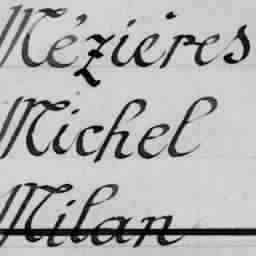 Mézières
Michel
Milan